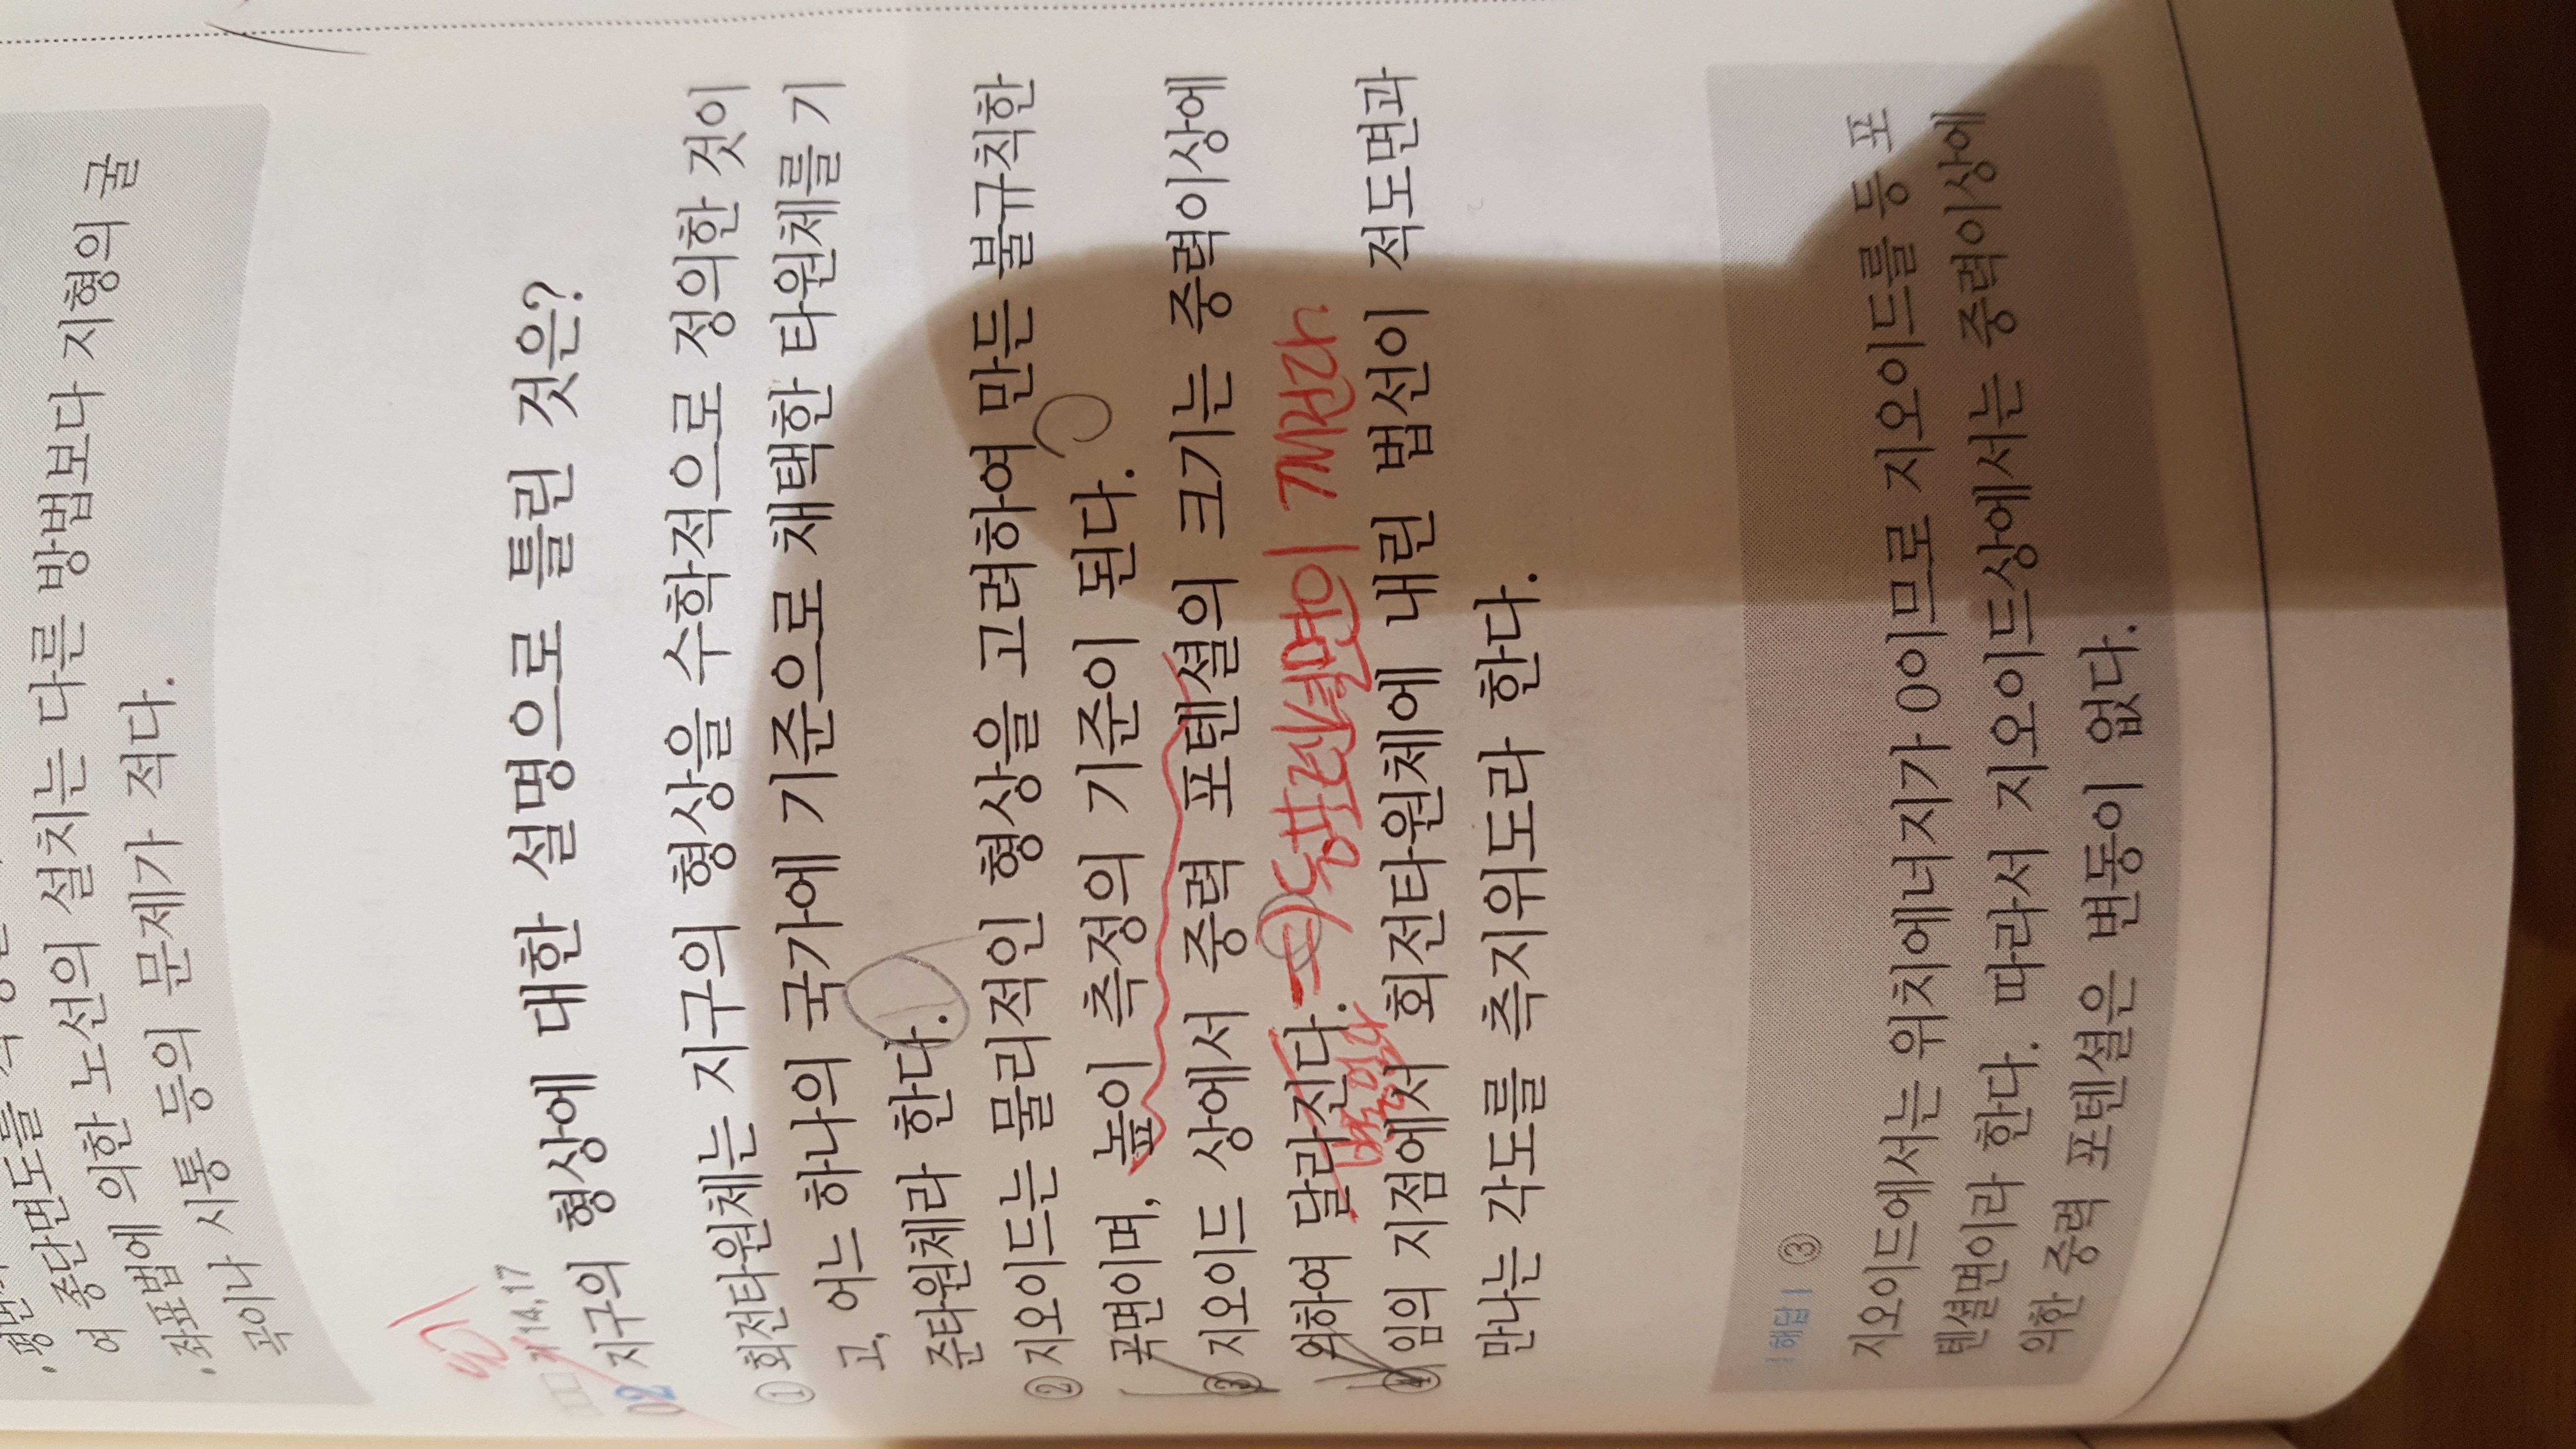 여 종단면도를
여 의한 노선의 설치는 다른 방법보다 지형의 굴
·좌표법에
곡이나 시통 등의 문제가 적다.
14,17
02 지구의 형상에 대한 설명으로 틀린 것은?
① 회전타원체는 지구의 형상을 수학적으로 정의한 것이
고, 어느 하나의 국가에 기준으로 채택한 타원체를 기
준타원체라 한다.
② 지오이드는 물리적인 형상을 고려하여 만든 불규칙한
곡면이며, 높이 측정의 기준이 된다.
③ 지오이드 상에서 중력 포텐셜의 크기는 중력이상에
의하여 달라진다. → 등포텐셜면이
없다
④ 임의 지점에서 회전타원체에 내린 법선이 적도면과
만나는 각도를 측지위도라 한다.
| 해답 | ③
지오이드에서는 위치에너지가 0이므로 지오이드를 등 포
텐셜면이라 한다. 따라서 지오이드상에서는 중력이상에
의한 중력 포텐셜은 변동이 없다.